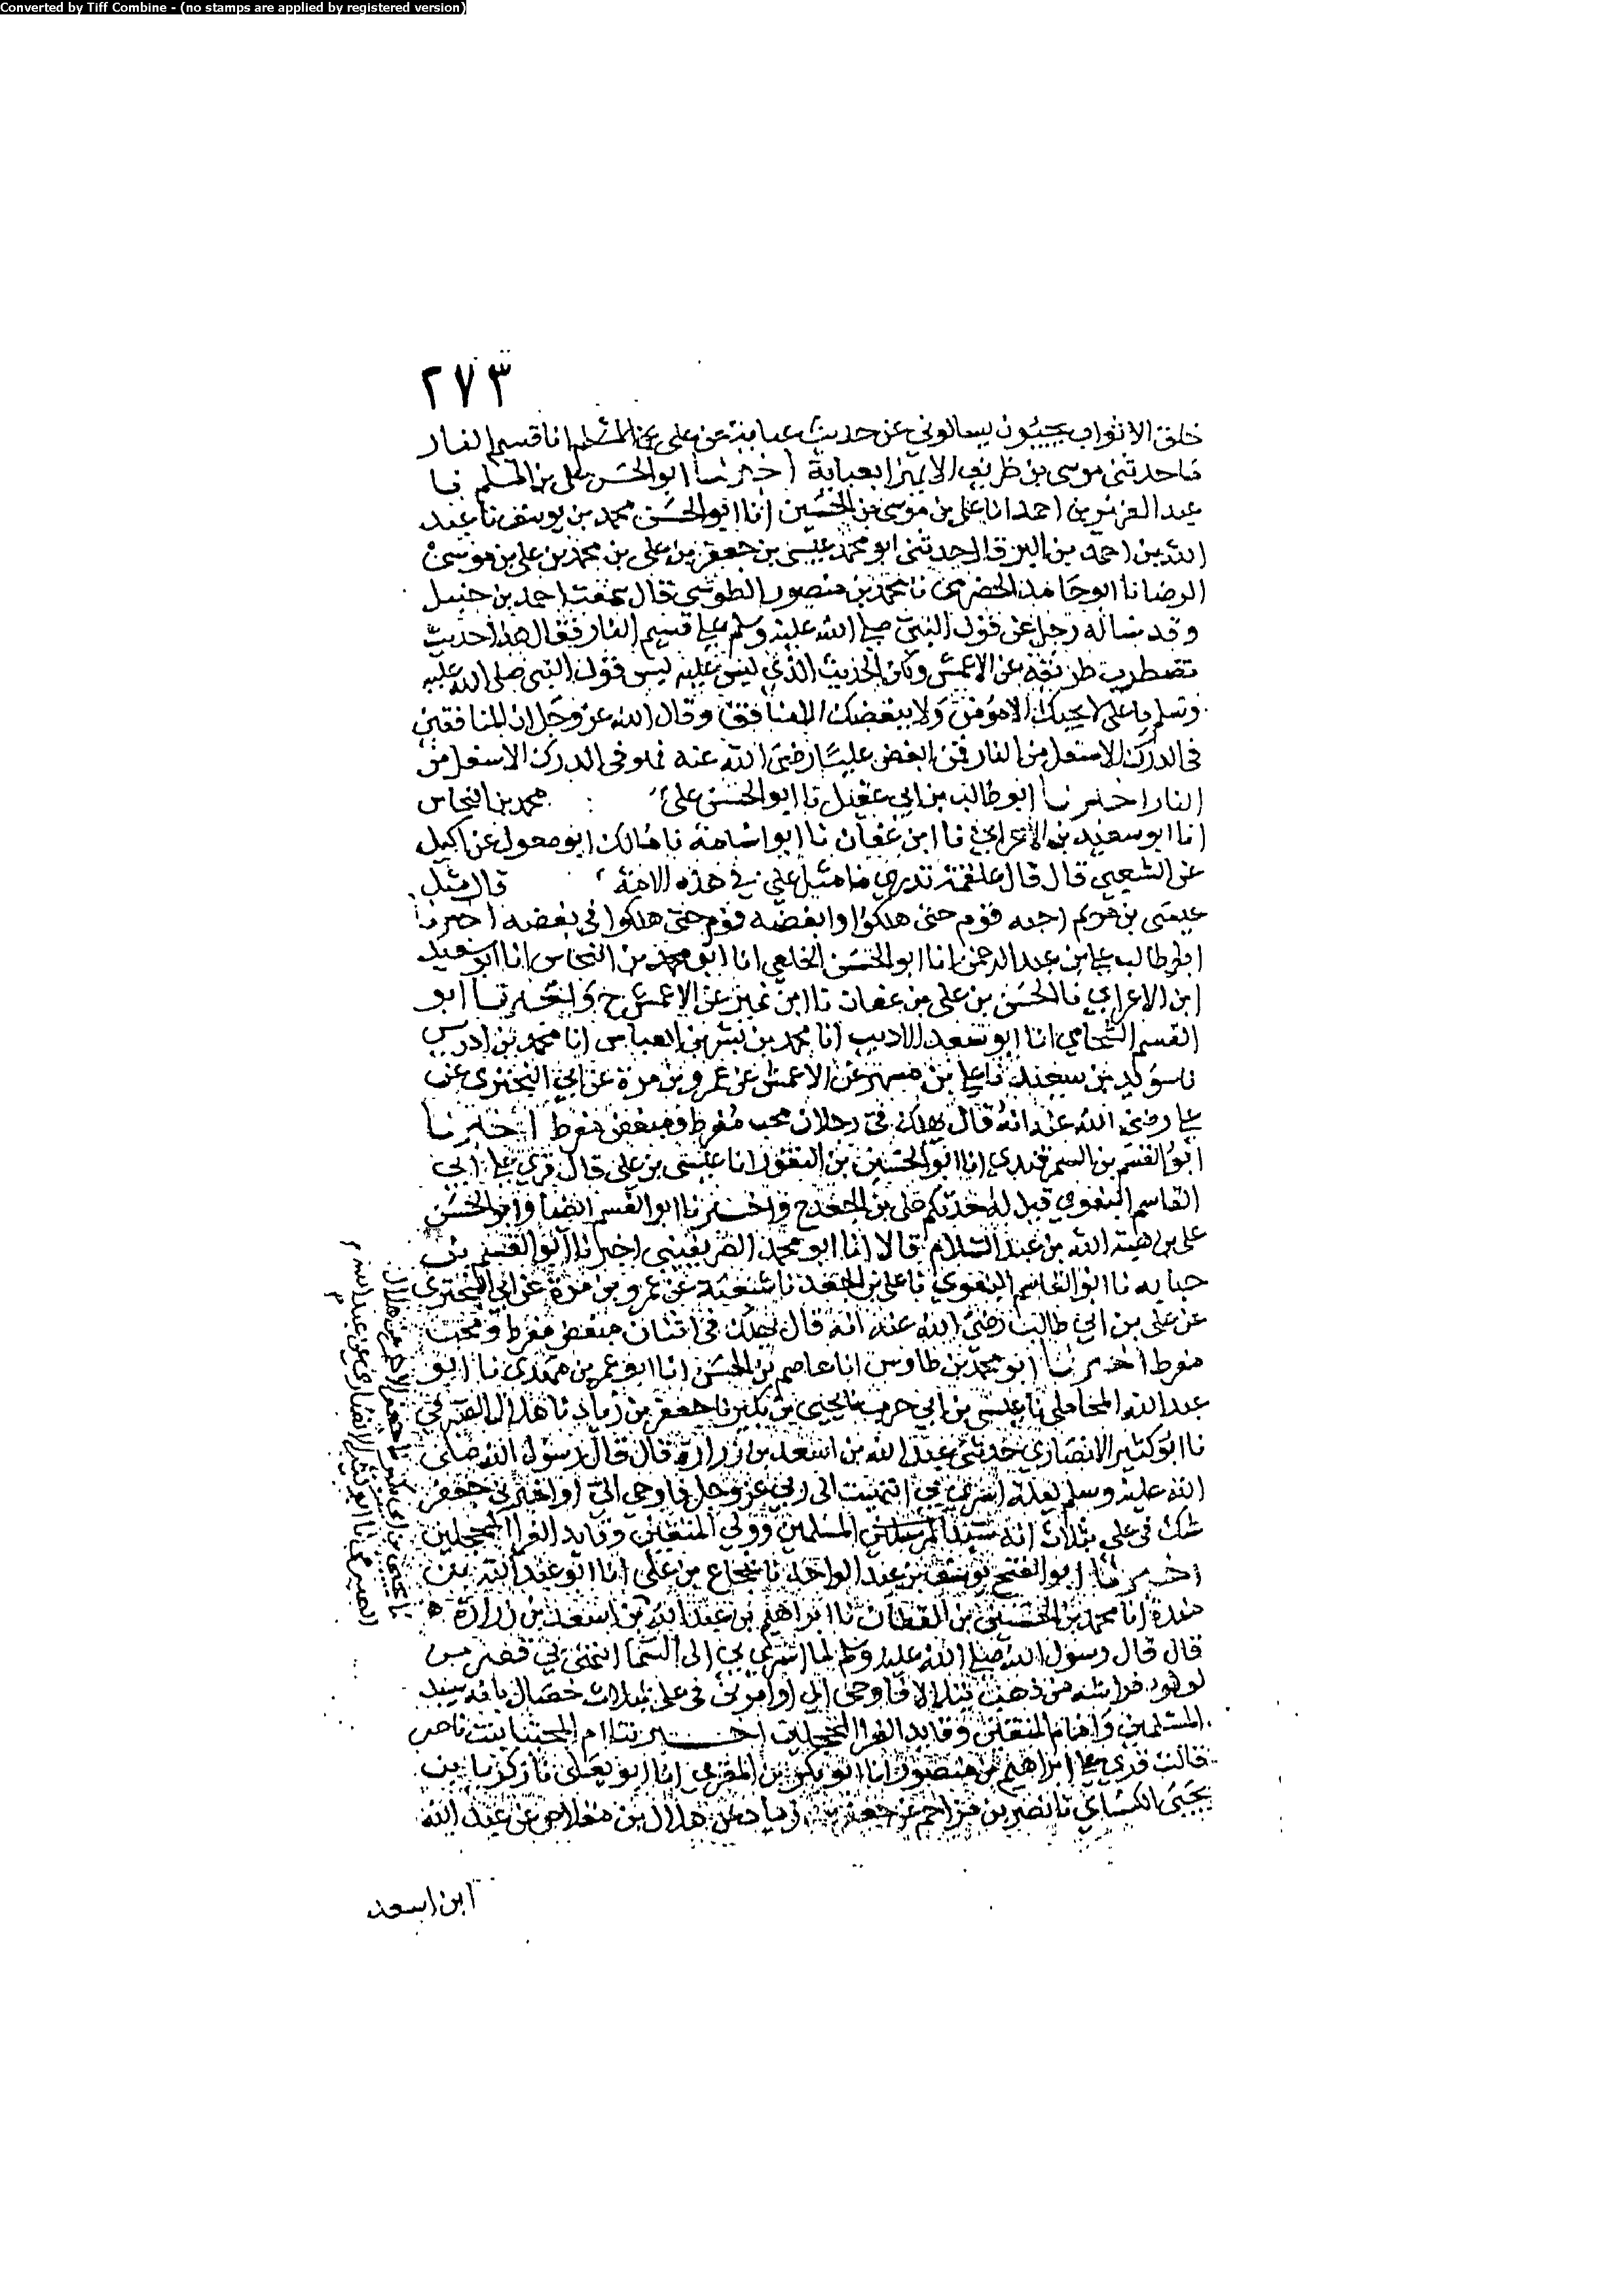 Converted by Tiff Combine - (no stamps are applied by registered version)
٢٧٣
خلق الاثواب يجيبون يسالوني عن حديث عباية عن على انا قسيم النار
ما حدثني موسى بن ظريف الا ليهزا بعباية اخبرنا ابو الحسن على بن المسلم نا
عبد العزيز بن احمد انا على بن موسى بن الحسين انا ابو الحسن محمد بن يوسف نا عبد
الله بن احمد بن قال حدثني ابو محمد عيسى بن جعفر بن على بن محمد بن على بن موسى
الرضا نا ابو حامد الحضرمى نا محمد بن منصور الطوسي قال سمعت احمد بن حنبل
وقد ساله رجل عن قول النبي صلى الله عليه وسلم على قسيم النار فقال هذا حديث
تضطرب طريقه عن الاعمش ولكن الحديث الذي ليس عليه لبس قول النبي صلى الله عليه
وسلم يا على لا يحبك الا مؤمن ولا يبغضك الا منافق وقال الله عز وجل ان المنافقين
في الدرك الاسفل من النار فمن ابغض عليا رضي الله عنه فهو في الدرك الاسفل من
النار اخبرنا ابو طالب بن ابي عقيل نا ابو الحسن على محمد بن النحاس
انا ابو سعيد بن الاعرابي نا ابن عفان نا ابو اسامة نا مالك ابو معول عن اكيل
عن الشعبي قال قال علقمة تدري ما مثل على في هذه الامة قال مثل
عيسى بن مريم احبه قوم حتى هلكوا وابغضه قوم حتى هلكوا في بغضه اخبرنا
ابو طالب على بن عبد الرحمن انا ابو الحسن الخلعي انا ابو محمد بن النحاس انا ابو سعيد
ابن الاعرابي نا الحسن بن على بن عفان نا ابن نمير عن الاعمش ح واخبرنا ابو
القسم الشحامي انا ابو سعد الاديب انا محمد بن بشر بن العباس انا محمد بن ادريس
نا سويد بن سعيد نا على بن مسهر عن الاعمش عن عمرو بن مرة عن ابي البختري عن
على رضي الله عنه انه قال يهلك في رجلان محب مفرط ومبغض مفرط اخبرنا
ابو القسم بن السمرقندي انا ابو الحسين بن النقور انا عيسى بن على قال قرى على ابي
القاسم البغوي قيل له حدثكم على بن الجعد ح واخبرنا ابو القسم ايضا وابو الحسن
على بن هبة الله بن عبد السلام قالا انا ابو محمد الصريفيني اخبرنا ابو القسم بن
حبابه نا ابو القاسم البغوي نا على بن الجعد نا شعبة عن عمرو بن مرة عن ابي البختري
عن على بن ابي طالب رضي الله عنه انه قال يهلك في اثنان مبغض مفرط ومحب
مفرط اخبرنا ابو محمد بن طاوس انا عاصم بن الحسن انا ابو عمر بن مهدى نا ابو
عبد الله المحاملي نا عيسى بن ابي حرب نا يحيى بن بكير نا جعفر بن زياد نا هلال الصيرفي
نا ابو كثير الانصاري حدثني عبد الله بن اسعد بن زرارة قال قال رسول الله صلى
الله عليه وسلم ليلة اسرى بي انتهيت الى ربي عز وجل فاوحى الي او اخبرني جعفر
شك في على بثلاث انه سيد المسلمين وولي المتقين وقايد الغر المحجلين
اخبرنا ابو الفتح يوسف بن عبد الواحد نا شجاع بن على انا ابو عبد الله بن
مندة انا محمد بن الحسين بن القطان نا ابراهيم بن عبد الله بن اسعد بن زرارة
قال قال رسول الله صلى الله عليه وسلم لما اسرى بي الى السما انتهى بي قصر من
لولو فراشه من ذهب يتلالا فاوحى الى او امرني في على بثلاث خصال بانه سيد
المسلمين وامام المتقين وقايد الغر المحجلين اخبرتنا ام المجتبا بنت ناصر
قالت قرى على ابراهيم بن منصور انا ابو بكر بن المقرى انا ابو يعلى نا زكريا بن
يحيى الكسائي نا نصر بن مزاحم عن جعفر بن زياد عن هلال بن مقلاص عن عبد الله
نا يحيى بن ابي بكير نا جعفر الاحمر عن هلال
الصيرفي نا ابو كثير الانصاري عن عبد الله
ابن اسعد